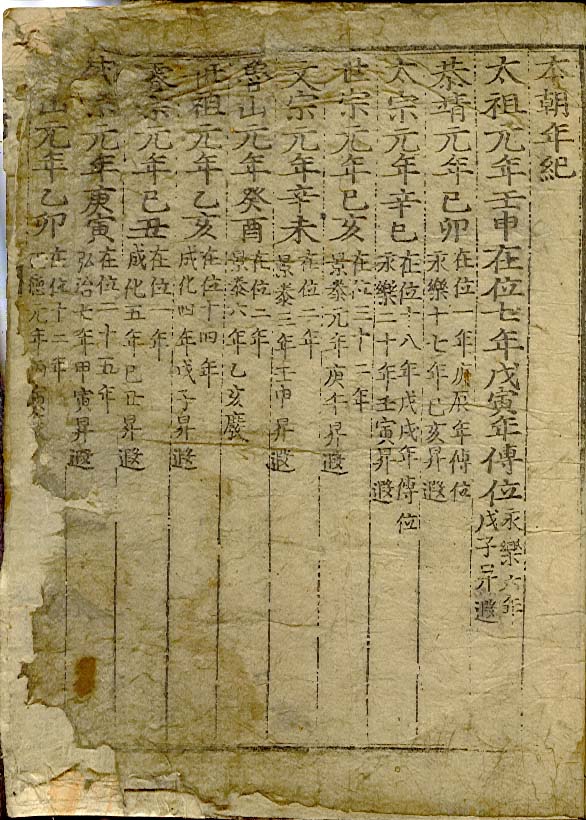 本朝年紀
太祖元年壬申在位七年戊寅年傳位永樂六年
戊子昇遐
恭靖元年己卯在位一年庚辰年傳位
永樂十七年己亥昇遐
太宗元年辛巳在位十八年戊戌年傳位
永樂二十年壬寅昇遐
世宗元年己亥在位三十二年
景泰元年庚午昇遐
文宗元年辛未在位二年
景泰三年壬申昇遐
魯山元年癸酉在位二年
景泰六年乙亥廢
世祖元年乙亥在位十四年
成化四年戊子昇遐
睿宗元年己丑在位一年
成化五年己丑昇遐
成宗元年庚寅在位二十五年
弘治七年甲寅昇遐
山元年乙卯在位十二年
德元年丙寅